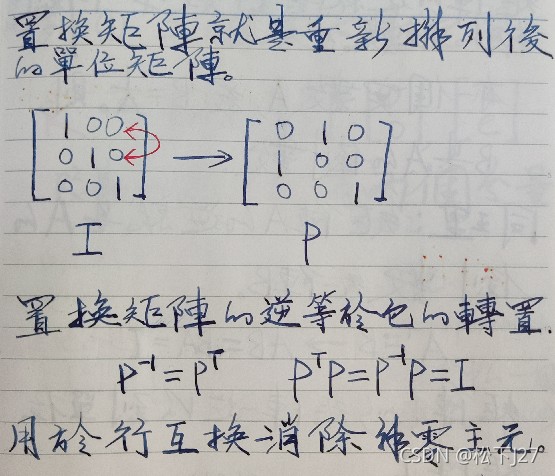 置換矩陣就是重新排列後
的單位矩陣。
1 0 0   0 1 0
0 1 0 → 1 0 0
0 0 1   0 0 1
I P
置換矩陣的逆等於它的轉置.
P⁻¹=Pᵀ PᵀP=P⁻¹P=I
用於行互換消除 零主元。
CSDN @松下J27